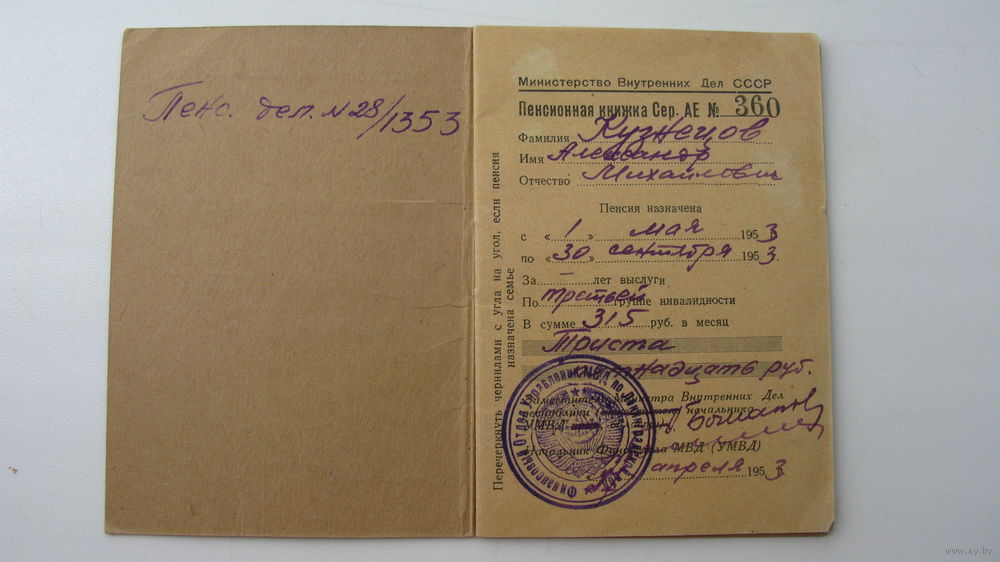 Пенс. дел. № 28/1353
Министерство Внутренних Дел СССР
Пенсионная книжка Сер. АЕ № 360
Фамилия Кузнецов
Имя Александр
Отчество Михайлович
Пенсия назначена
с «1» мая 1953 г.
по «30» сентября 1953 г.
За — лет выслуги
По третьей группе инвалидности
В сумме 315 руб. в месяц
Триста
надцать руб.
Заместитель Министра Внутренних Дел
республики начальника
УМВД области
Начальник МВД (УМВД)
апреля 1953 г.
Перечеркнуть чернилами с угла на угол, если пенсия
назначена семье
Финансовый Отдел Управления МВД по
www.ay.by